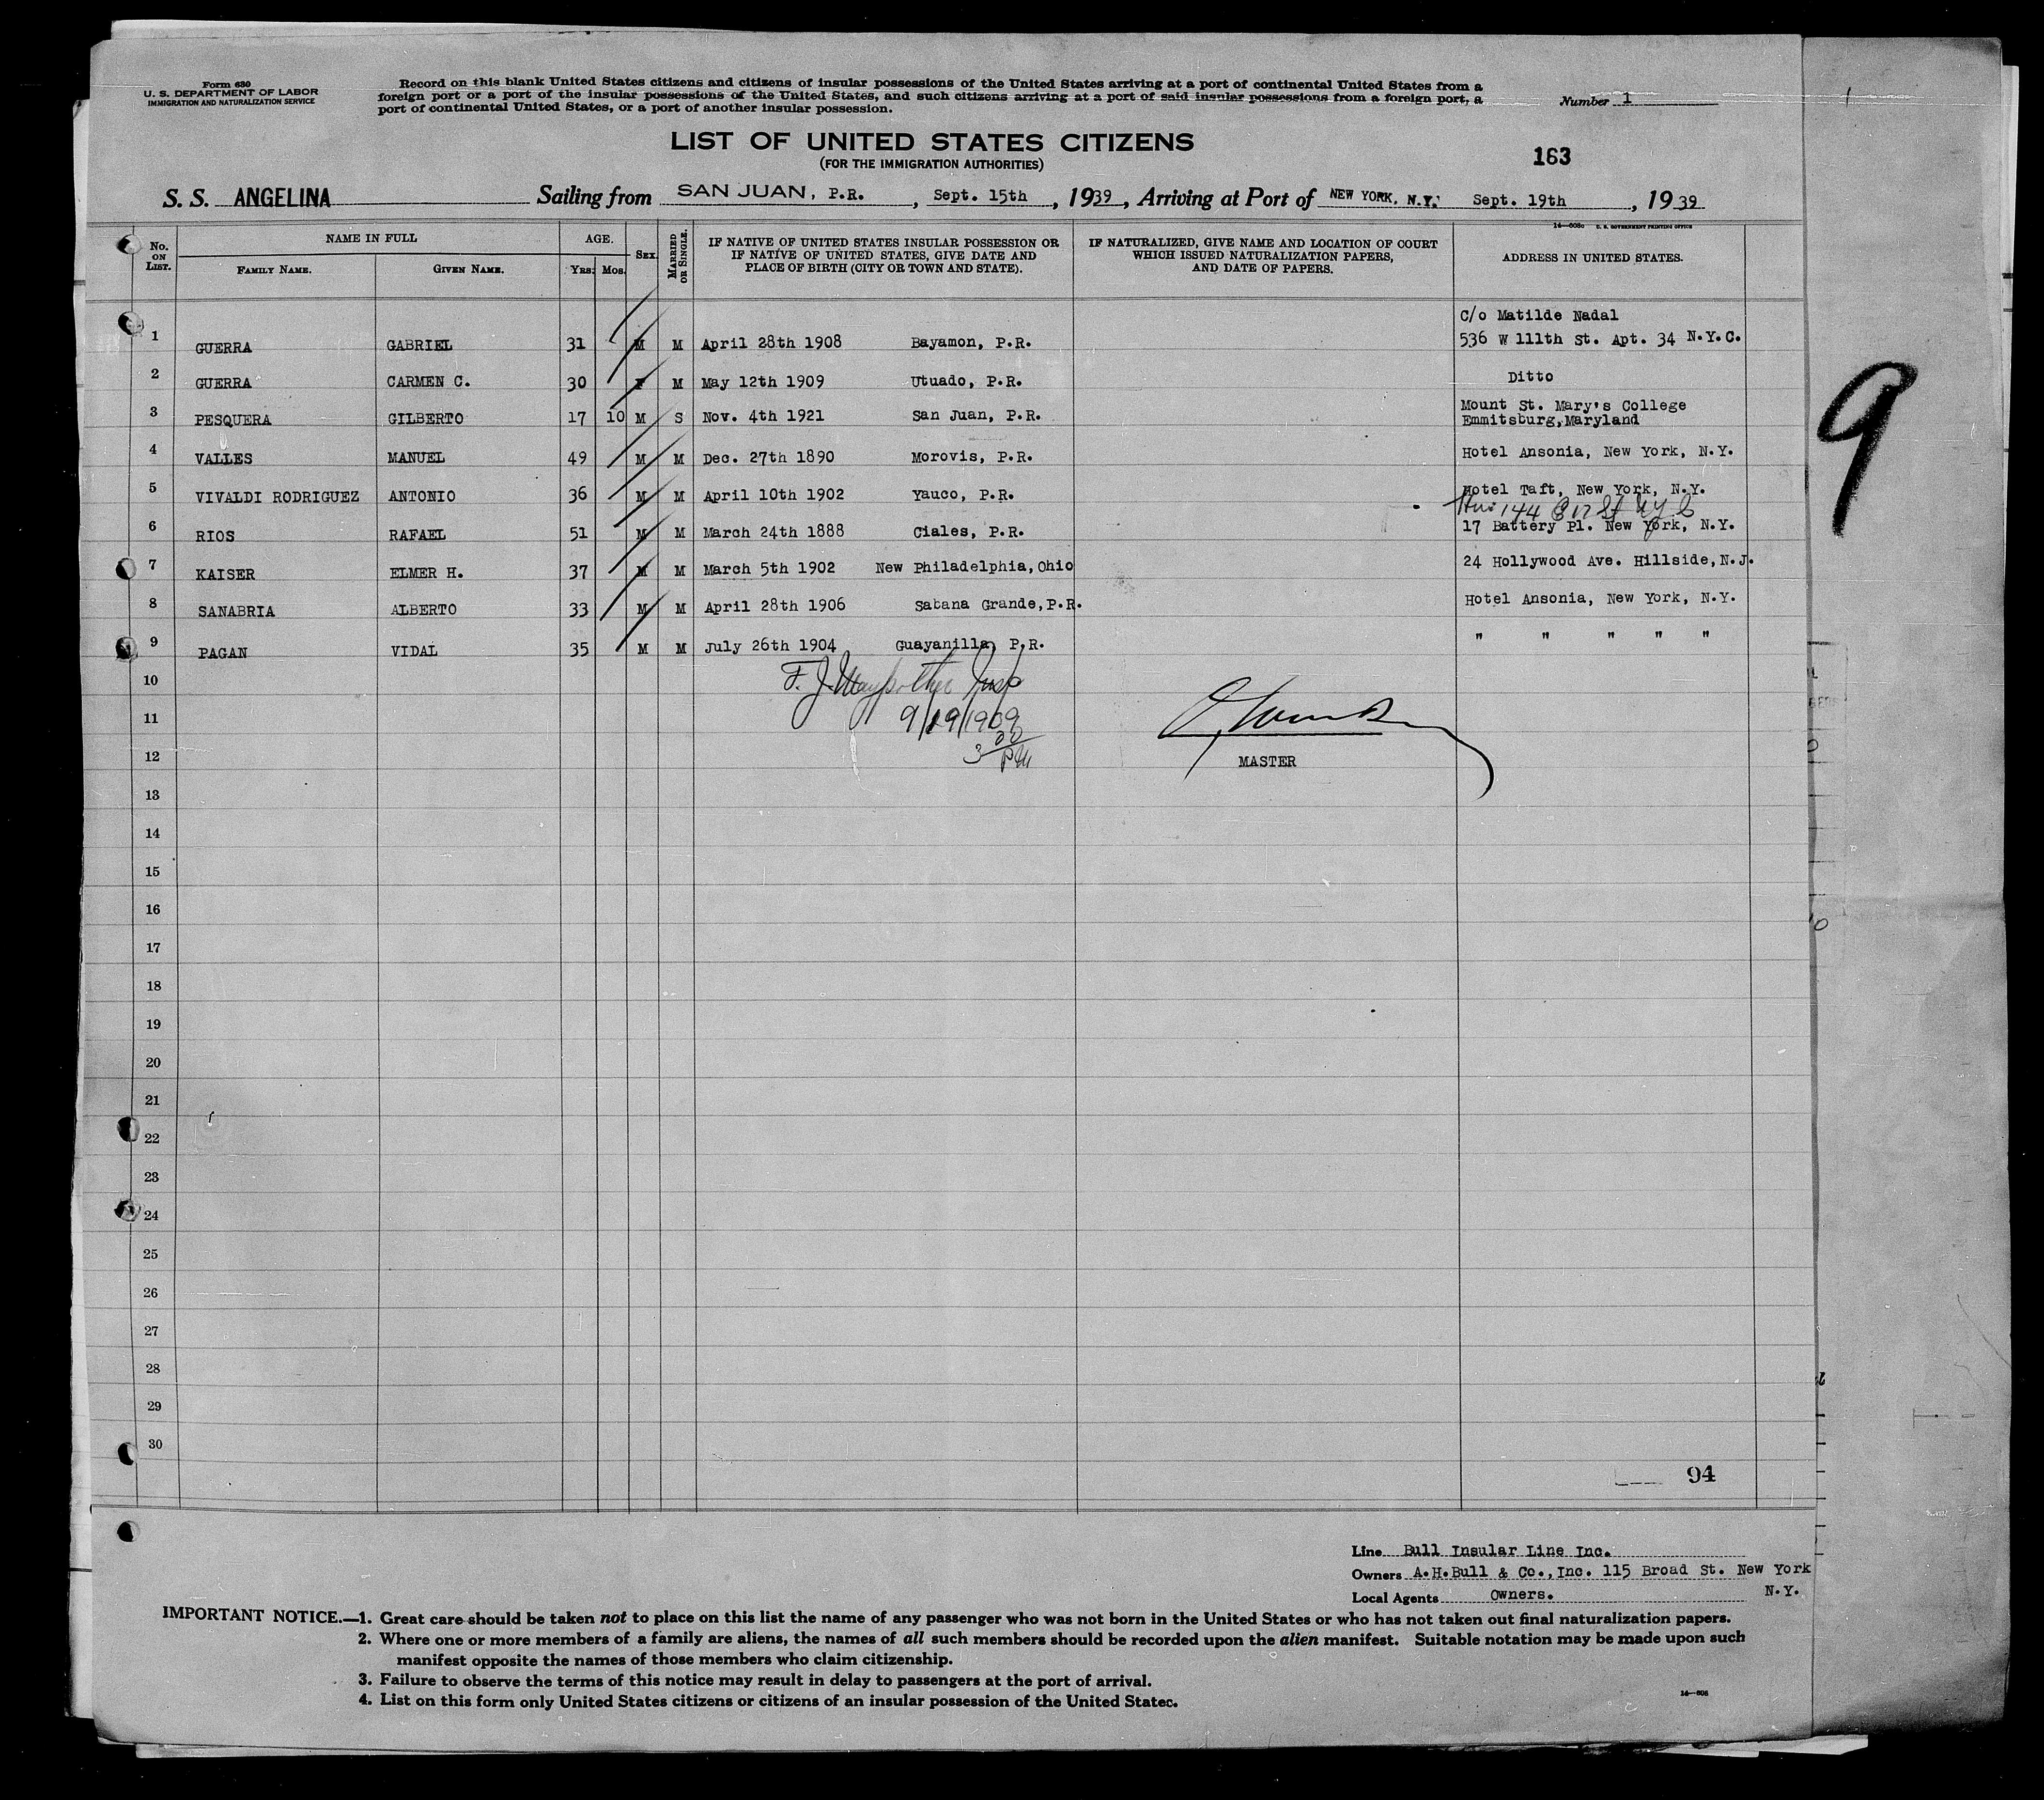 Form 630
U. S. DEPARTMENT OF LABOR
IMMIGRATION AND NATURALIZATION SERVICE
Record on this blank United States citizens and citizens of insular possessions of the United States arriving at a port of continental United States from a
foreign port or a port of the insular possessions of the United States, and such citizens arriving at a port of said insular possessions from a foreign port, a
port of continental United States, or a port of another insular possession.
Number 1
LIST OF UNITED STATES CITIZENS
(FOR THE IMMIGRATION AUTHORITIES)
163
S. S. ANGELINA Sailing from SAN JUAN, P.R. , Sept. 15th , 1939 , Arriving at Port of NEW YORK, N.Y. Sept. 19th , 1939
14—608c U. S. GOVERNMENT PRINTING OFFICE
No. ON LIST. NAME IN FULL FAMILY NAME. GIVEN NAME. AGE. YRS. MOS. SEX. MARRIED OR SINGLE. IF NATIVE OF UNITED STATES INSULAR POSSESSION OR IF NATIVE OF UNITED STATES, GIVE DATE AND PLACE OF BIRTH (CITY OR TOWN AND STATE). IF NATURALIZED, GIVE NAME AND LOCATION OF COURT WHICH ISSUED NATURALIZATION PAPERS, AND DATE OF PAPERS. ADDRESS IN UNITED STATES.
C/o Matilde Nadal
1 GUERRA GABRIEL 31 M M April 28th 1908 Bayamon, P.R. 536 W 111th St. Apt. 34 N.Y.C.
2 GUERRA CARMEN C. 30 F M May 12th 1909 Utuado, P.R. Ditto
3 PESQUERA GILBERTO 17 10 M S Nov. 4th 1921 San Juan, P.R. Mount St. Mary's College
Emmitsburg, Maryland
4 VALLES MANUEL 49 M M Dec. 27th 1890 Morovis, P.R. Hotel Ansonia, New York, N.Y.
5 VIVALDI RODRIGUEZ ANTONIO 36 M M April 10th 1902 Yauco, P.R. Hotel Taft, New York, N.Y.
144 St
6 RIOS RAFAEL 51 M M March 24th 1888 Ciales, P.R. 17 Battery Pl. New York, N.Y.
7 KAISER ELMER H. 37 M M March 5th 1902 New Philadelphia, Ohio 24 Hollywood Ave. Hillside, N.J.
8 SANABRIA ALBERTO 33 M M April 28th 1906 Sabana Grande, P.R. Hotel Ansonia, New York, N.Y.
9 PAGAN VIDAL 35 M M July 26th 1904 Guayanilla, P.R. " " " " "
10
F. J. Insp
11
9/19/1939
12
3 00 PM
MASTER
13
14
15
16
17
18
19
20
21
22
23
24
25
26
27
28
29
30
94
9
Line Bull Insular Line Inc.
Owners A.H.Bull & Co., Inc. 115 Broad St. New York
N.Y.
Local Agents Owners.
IMPORTANT NOTICE.—1. Great care should be taken not to place on this list the name of any passenger who was not born in the United States or who has not taken out final naturalization papers.
2. Where one or more members of a family are aliens, the names of all such members should be recorded upon the alien manifest. Suitable notation may be made upon such
manifest opposite the names of those members who claim citizenship.
3. Failure to observe the terms of this notice may result in delay to passengers at the port of arrival.
4. List on this form only United States citizens or citizens of an insular possession of the United States.
14—608